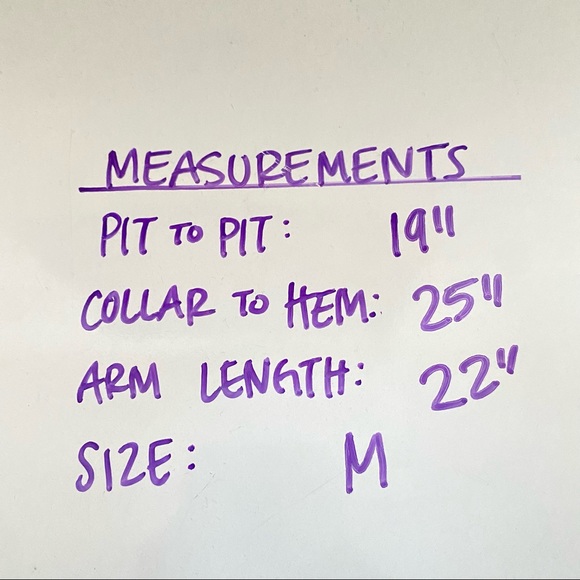 MEASUREMENTS
PIT TO PIT: 19"
COLLAR TO HEM: 25"
ARM LENGTH: 22"
SIZE: M